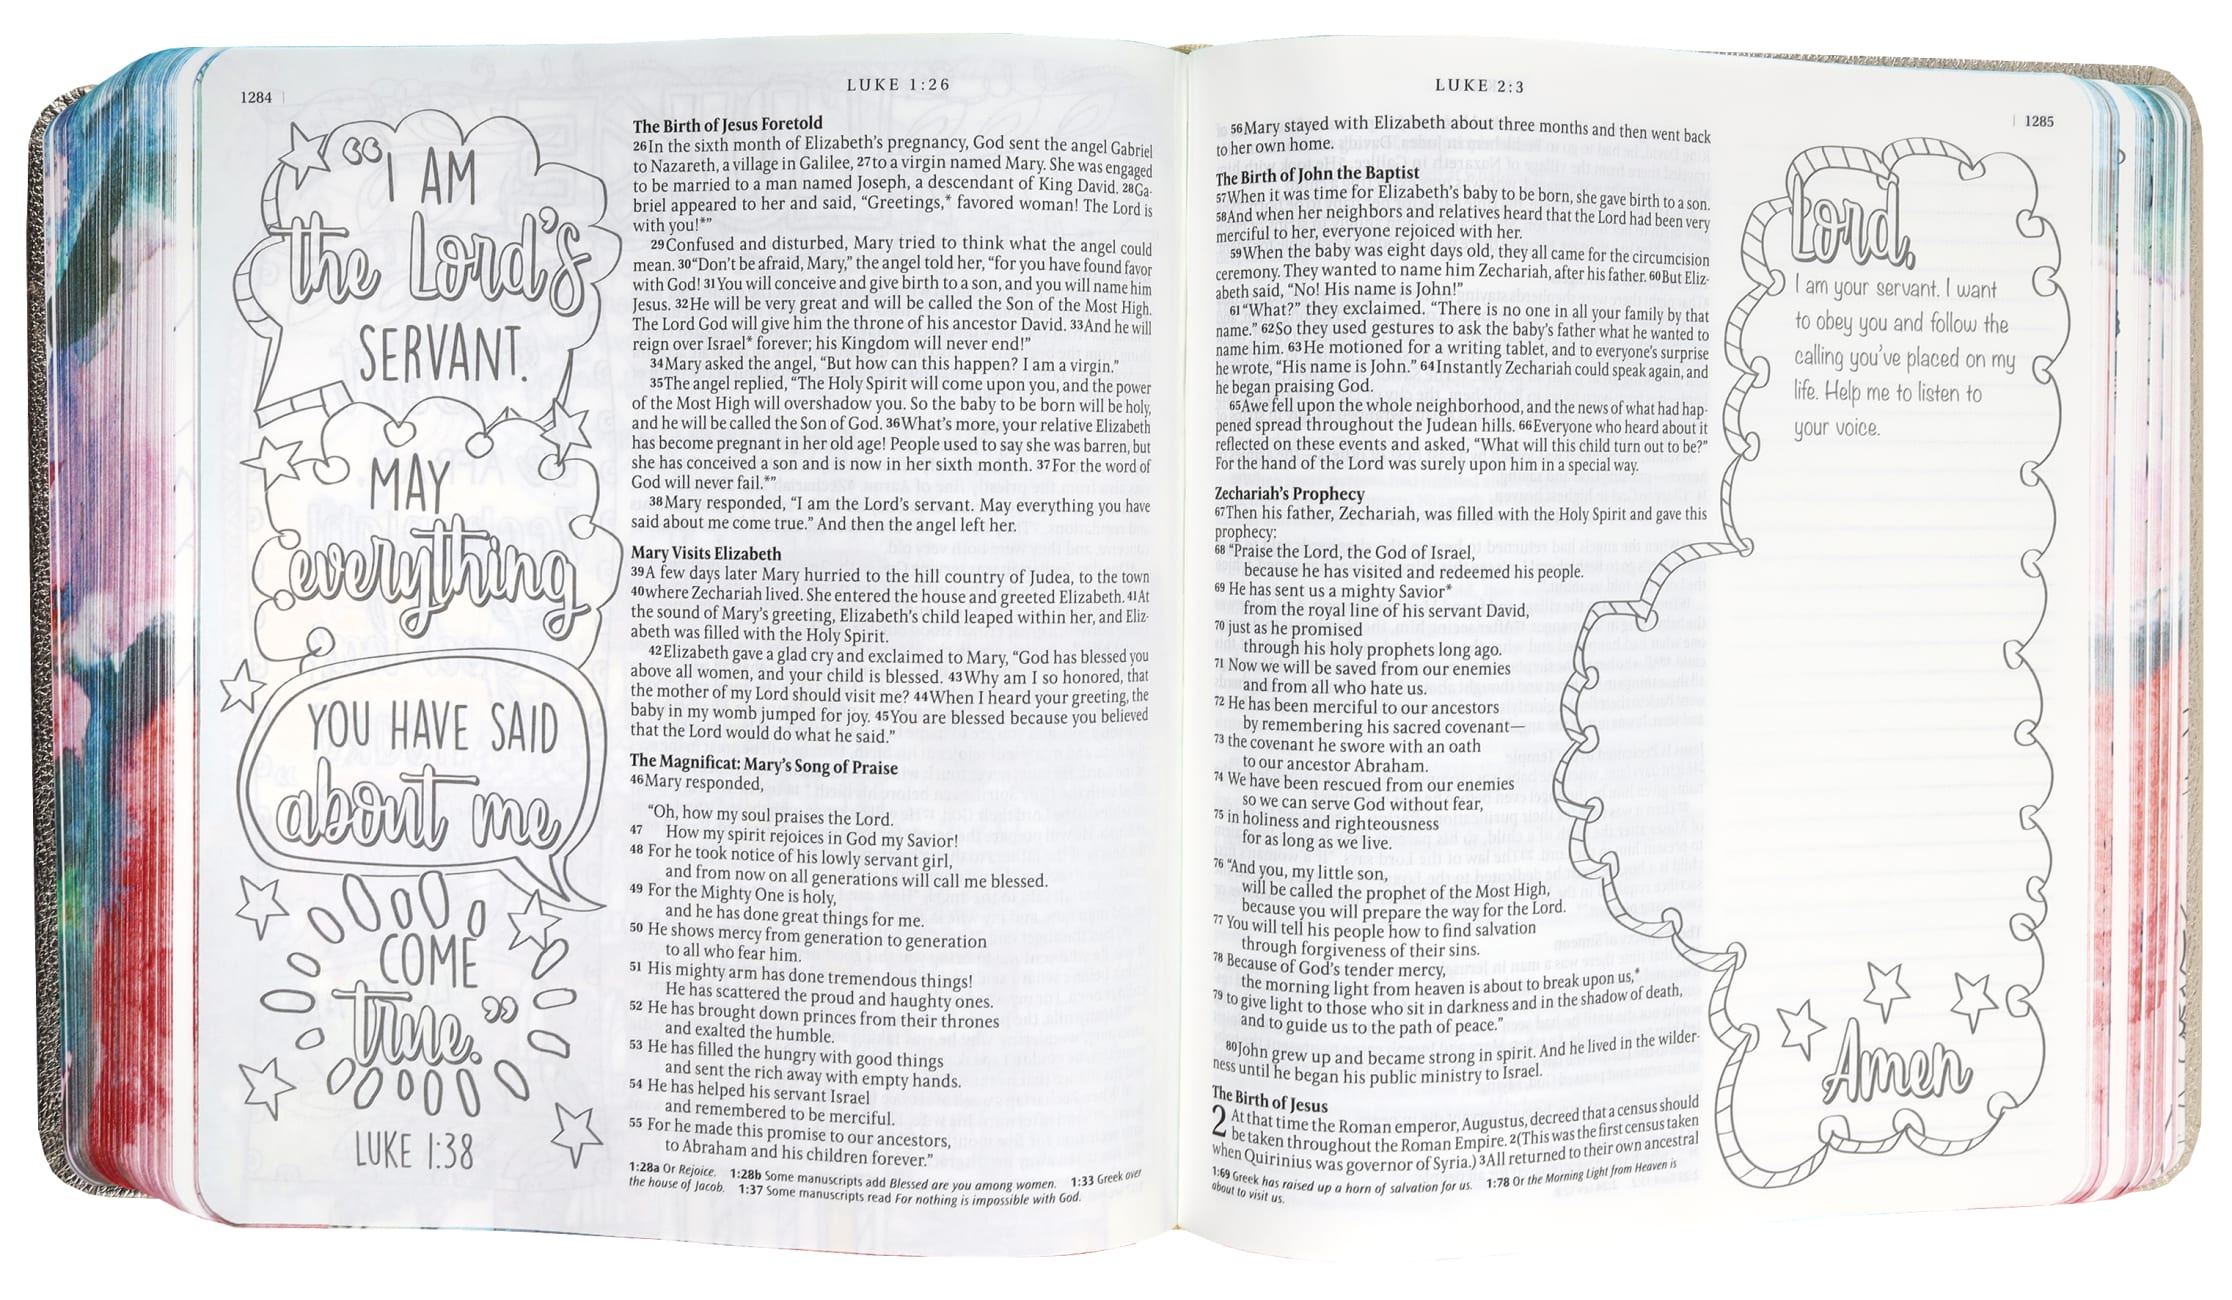 1284
LUKE 1:26
“I AM
the Lord’s
SERVANT.
MAY
everything
YOU HAVE SAID
about me
COME
true.”
LUKE 1:38
The Birth of Jesus Foretold
26In the sixth month of Elizabeth’s pregnancy, God sent the angel Gabriel
to Nazareth, a village in Galilee, 27to a virgin named Mary. She was engaged
to be married to a man named Joseph, a descendant of King David. 28Ga-
briel appeared to her and said, “Greetings,* favored woman! The Lord is
with you!*”
29Confused and disturbed, Mary tried to think what the angel could
mean. 30“Don’t be afraid, Mary,” the angel told her, “for you have found favor
with God! 31You will conceive and give birth to a son, and you will name him
Jesus. 32He will be very great and will be called the Son of the Most High.
The Lord God will give him the throne of his ancestor David. 33And he will
reign over Israel* forever; his Kingdom will never end!”
34Mary asked the angel, “But how can this happen? I am a virgin.”
35The angel replied, “The Holy Spirit will come upon you, and the power
of the Most High will overshadow you. So the baby to be born will be holy,
and he will be called the Son of God. 36What’s more, your relative Elizabeth
has become pregnant in her old age! People used to say she was barren, but
she has conceived a son and is now in her sixth month. 37For the word of
God will never fail.*”
38Mary responded, “I am the Lord’s servant. May everything you have
said about me come true.” And then the angel left her.
Mary Visits Elizabeth
39A few days later Mary hurried to the hill country of Judea, to the town
40where Zechariah lived. She entered the house and greeted Elizabeth. 41At
the sound of Mary’s greeting, Elizabeth’s child leaped within her, and Eliz-
abeth was filled with the Holy Spirit.
42Elizabeth gave a glad cry and exclaimed to Mary, “God has blessed you
above all women, and your child is blessed. 43Why am I so honored, that
the mother of my Lord should visit me? 44When I heard your greeting, the
baby in my womb jumped for joy. 45You are blessed because you believed
that the Lord would do what he said.”
The Magnificat: Mary’s Song of Praise
46Mary responded,
“Oh, how my soul praises the Lord.
47 How my spirit rejoices in God my Savior!
48 For he took notice of his lowly servant girl,
and from now on all generations will call me blessed.
49 For the Mighty One is holy,
and he has done great things for me.
50 He shows mercy from generation to generation
to all who fear him.
51 His mighty arm has done tremendous things!
He has scattered the proud and haughty ones.
52 He has brought down princes from their thrones
and exalted the humble.
53 He has filled the hungry with good things
and sent the rich away with empty hands.
54 He has helped his servant Israel
and remembered to be merciful.
55 For he made this promise to our ancestors,
to Abraham and his children forever.”
1:28a Or Rejoice. 1:28b Some manuscripts add Blessed are you among women. 1:33 Greek over
the house of Jacob. 1:37 Some manuscripts read For nothing is impossible with God.
LUKE 2:3
1285
56Mary stayed with Elizabeth about three months and then went back
to her own home.
The Birth of John the Baptist
57When it was time for Elizabeth’s baby to be born, she gave birth to a son.
58And when her neighbors and relatives heard that the Lord had been very
merciful to her, everyone rejoiced with her.
59When the baby was eight days old, they all came for the circumcision
ceremony. They wanted to name him Zechariah, after his father. 60But Eliz-
abeth said, “No! His name is John!”
61“What?” they exclaimed. “There is no one in all your family by that
name.” 62So they used gestures to ask the baby’s father what he wanted to
name him. 63He motioned for a writing tablet, and to everyone’s surprise
he wrote, “His name is John.” 64Instantly Zechariah could speak again, and
he began praising God.
65Awe fell upon the whole neighborhood, and the news of what had hap-
pened spread throughout the Judean hills. 66Everyone who heard about it
reflected on these events and asked, “What will this child turn out to be?”
For the hand of the Lord was surely upon him in a special way.
Zechariah’s Prophecy
67Then his father, Zechariah, was filled with the Holy Spirit and gave this
prophecy:
68 “Praise the Lord, the God of Israel,
because he has visited and redeemed his people.
69 He has sent us a mighty Savior*
from the royal line of his servant David,
70 just as he promised
through his holy prophets long ago.
71 Now we will be saved from our enemies
and from all who hate us.
72 He has been merciful to our ancestors
by remembering his sacred covenant—
73 the covenant he swore with an oath
to our ancestor Abraham.
74 We have been rescued from our enemies
so we can serve God without fear,
75 in holiness and righteousness
for as long as we live.
76 “And you, my little son,
will be called the prophet of the Most High,
because you will prepare the way for the Lord.
77 You will tell his people how to find salvation
through forgiveness of their sins.
78 Because of God’s tender mercy,
the morning light from heaven is about to break upon us,*
79 to give light to those who sit in darkness and in the shadow of death,
and to guide us to the path of peace.”
80John grew up and became strong in spirit. And he lived in the wilder-
ness until he began his public ministry to Israel.
The Birth of Jesus
2 At that time the Roman emperor, Augustus, decreed that a census should
be taken throughout the Roman Empire. 2(This was the first census taken
when Quirinius was governor of Syria.) 3All returned to their own ancestral
1:69 Greek has raised up a horn of salvation for us. 1:78 Or the Morning Light from Heaven is
about to visit us.
Lord,
I am your servant. I want
to obey you and follow the
calling you’ve placed on my
life. Help me to listen to
your voice.
Amen